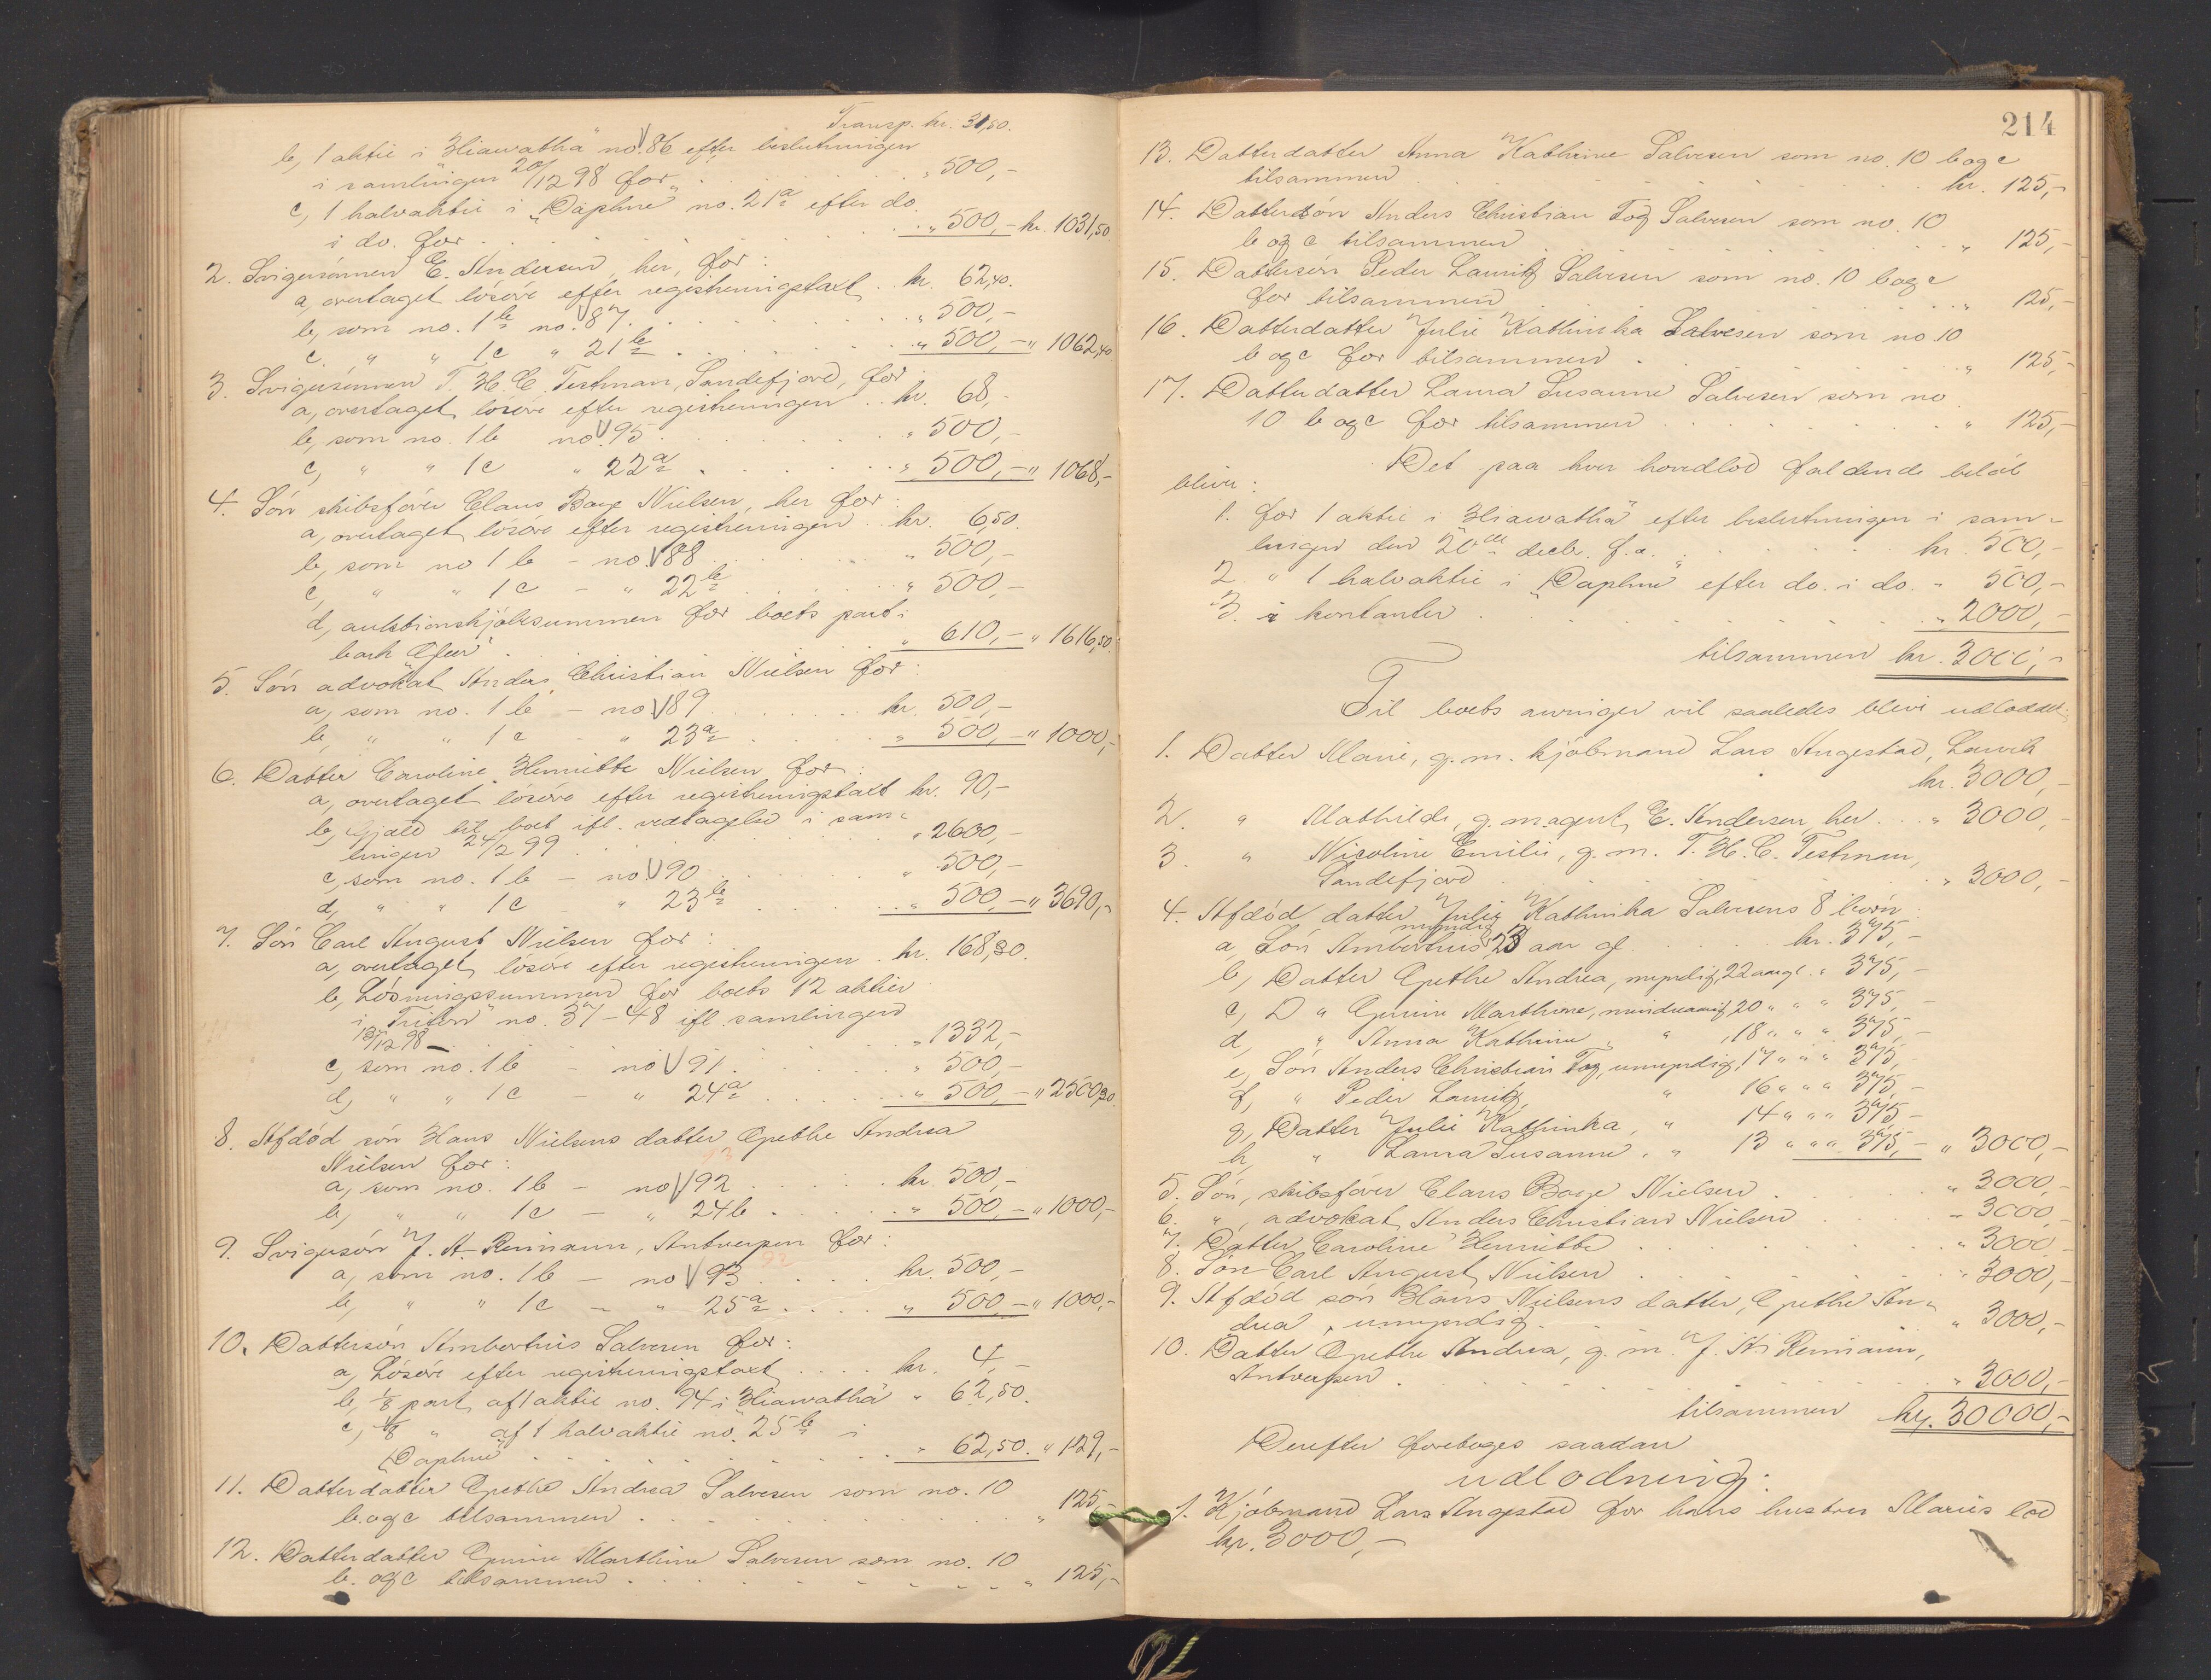 Transp. kr. 31,50.
b, 1 aktie i "Hiawatha" no. 86 efter beslutningen
i samlingen 20/12 98 for . . . " 500,-
c, 1 halvaktie i "Daphne" no. 21a efter do.
i do. for . . . " 500,- kr. 1031,50
2. Svigersønnen E. Andersen, her, for:
a, overtaget løsøre efter registreringstaxt . kr. 62,40.
b, som no. 1b no. 87 . . . " 500,-
c, " " 1c " 21b . . . " 500,- " 1062,40
3. Svigersønnen T. H. C. Testman, Sandefjord, for:
a, overtaget løsøre efter registreringen . . kr. 68,-
b, som no. 1b no. 95 . . . " 500,-
c, " " 1c " 22a . . . " 500,- " 1068,-
4. Søn skibsfører Claus Boye Nielsen, her for:
a, overtaget løsøre efter registreringen . kr. 6,50.
b, som no 1b - no. 88 . . . " 500,-
c, " " 1c - " 22b . . . " 500,-
d, auktionskjøbsummen for boets part i
bark "Ofir" . . . " 610,- " 1616,50.
5. Søn advokat Anders Christian Nielsen for:
a, som no. 1b - no 89 . . . kr. 500,-
b, " " 1c - " 23a . . . " 500,- " 1000,-
6. Datter Caroline Henriette Nielsen for:
a, overtaget løsøre efter registreringstaxt kr. 90,-
b, Gjæld til boet ifl. vedtagelse i sam-
lingen 24/2 99 . . . " 2600,-
c, som no. 1b - no 90 . . . " 500,-
d, " " 1c - " 23b . . . " 500,- " 3690,-
7. Søn Carl August Nielsen for:
a, overtaget løsøre efter registreringen . kr. 168,30.
b, Løsningssummen for boets 12 aktier
i "Triton" no. 37-48 ifl. samlingen
13/12 98 - . . . " 1332,-
c, som no. 1b - no 91 . . . " 500,-
d, " " 1c - " 24a . . . " 500,- " 2500,30.
8. Afdød søn Hans Nielsens datter Grethe Andrea
Nielsen for:
93
a, som no. 1b - no 92 . . . kr. 500,-
b, " " 1c - " 24b . . . " 500,- " 1000,-
9. Svigersøn J. A. Reimann, Antwerpen for:
92
a, som no. 1b - no 93 . . . kr. 500,-
b, " " 1c - " 25a . . . " 500,- " 1000,-
10. Dattersøn Ambortius Salvesen for:
a, Løsøre efter registreringstaxt . . . kr. 4,-
b, 1/8 part af 1 aktie no. 94 i "Hiawatha" " 62,50.
c, 1/8 " af 1 halvaktie no. 25b i
"Daphne" . . . " 62,50. " 129,-
11. Datterdatter Grethe Andrea Salvesen som no. 10
b. og c tilsammen . . . " 125,-
12. Datterdatter Gurine Marthine Salvesen som no. 10
b. og c tilsammen . . . " 125,-
214
13. Datterdatter Anna Kathrine Salvesen som no. 10 b og c
tilsammen . . . kr. 125,-
14. Dattersøn Anders Christian Foy Salvesen som no. 10
b og c tilsammen . . . " 125,-
15. Dattersøn Peder Lauritz Salvesen som no. 10 b og c
for tilsammen . . . " 125,-
16. Datterdatter Julie Kathinka Salvesen som no 10
b og c for tilsammen . . . " 125,-
17. Datterdatter Laura Susanne Salvesen som no
10 b og c for tilsammen . . . " 125,-
Det paa hver hovedlod faldende beløb
bliver:
1. for 1 aktie i "Hiawatha" efter beslutningen i sam-
lingen den 20de decbr. f.a. . . . kr. 500,-
2. " 1 halvaktie i "Daphne" efter do. i do. " 500,-
3. i kontanter . . . " 2000,-
tilsammen kr. 3000,-
Til boets arvinger vil saaledes blive udloddet:
1. Datter Marie, g. m. kjøbmand Lars Angestad, Laurvik
kr. 3000,-
2. " Mathilde, g. m. agent E. Andersen, her . . " 3000,-
3. " Nicoline Emilie, g. m. T. H. C. Testman,
Sandefjord . . . " 3000,-
4. Afdød datter Julie Kathinka Salvesens 8 børn:
a, Søn Ambortius myndig 23 aar gl. . . . kr. 375,-
b, Datter Grethe Andrea, myndig, 22 aar gl. " 375,-
c, D " Gurine Marthine, mindreaarig 20 " " " 375,-
d, " Anna Kathrine, " 18 " " " 375,-
e, Søn Anders Christian Foy, umyndig, 17 " " " 375,-
f, " Peder Lauritz, " 16 " " " 375,-
g, Datter Julie Kathinka, " 14 " " " 375,-
h, " Laura Susanne, " 13 " " " 375,- " 3000,-
5. Søn, skibsfører Claus Boye Nielsen . . . " 3000,-
6. ", advokat Anders Christian Nielsen . . . " 3000,-
7. Datter Caroline Henriette . . . " 3000,-
8. Søn Carl August Nielsen . . . " 3000,-
9. Afdød søn Hans Nielsens datter, Grethe An-
drea, umyndig . . . " 3000,-
10. Datter Grethe Andrea, g. m. J. A. Reimann,
Antwerpen . . . " 3000,-
tilsammen kr. 30000,-
Derefter foretoges saadan
udlodning:
1. Kjøbmand Lars Angestad for hans hustru Maries lod
kr. 3000,-